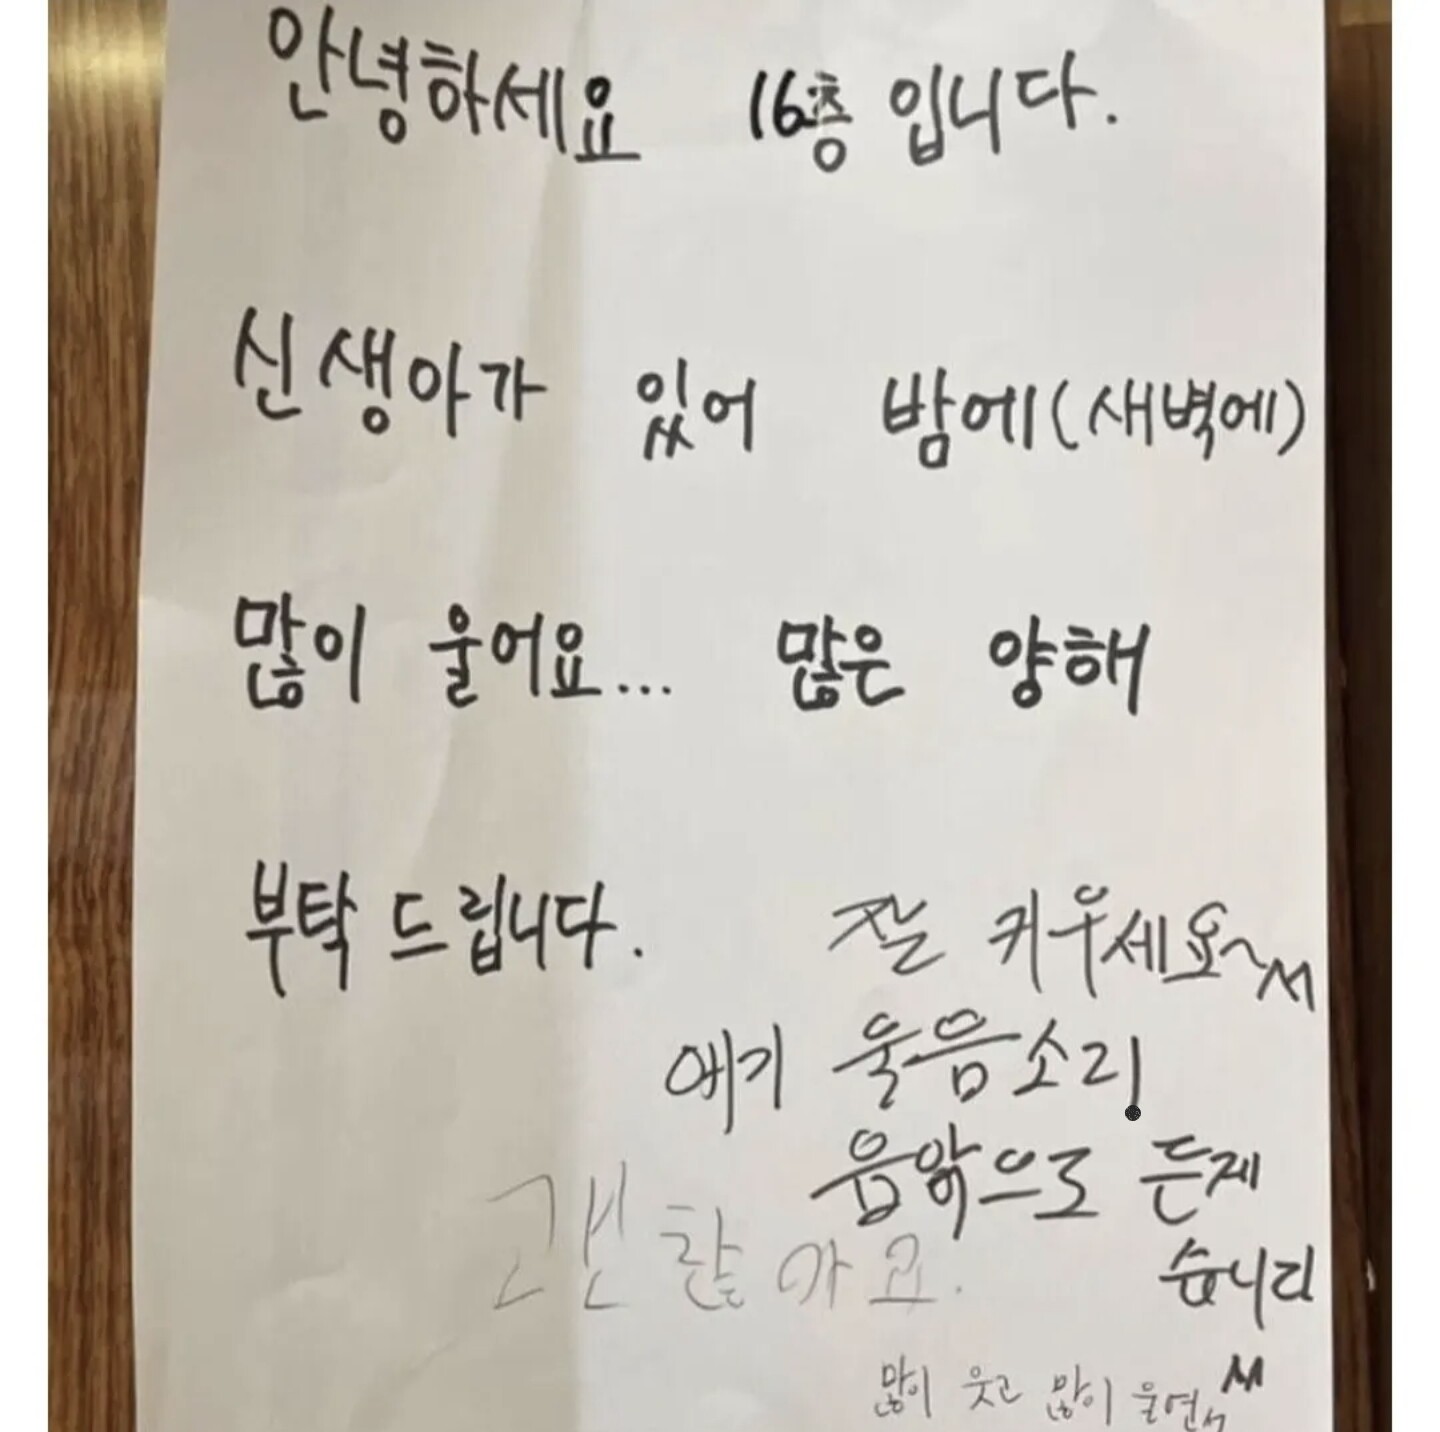 안녕하세요 16층 입니다.
신생아가 있어 밤에(새벽에)
많이 울어요... 많은 양해
부탁 드립니다.
잘 키우세요~
애기 울음소리
음악으로 듣게
습니다
괜찮아요.
많이 웃고 많이